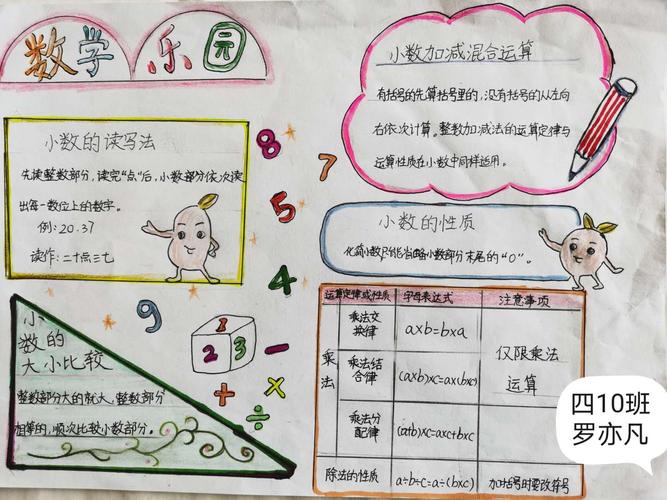 数学乐园
小数的读写法
先读整数部分，读完“点”后，小数部分依次读
出每一数位上的数字。
例：20.37
读作：二十点三七
小数加减混合运算
有括号的先算括号里的，没有括号的从左向
右依次计算。整数加减法的运算定律与
运算性质在小数中同样适用。
小数的性质
化简小数只能省略小数部分末尾的“0”。
8
7
5
4
9
1
2 3
－
＋
×
÷
小
数
的
大小比较
整数部分大的就大，整数部分
相等的，顺次比较小数部分。
运算定律或性质 字母表达式 注意事项
乘法
乘法交
换律
a×b=b×a
乘法结
合律
(a×b)×c=a×(b×c)
乘法分
配律
(a+b)×c=a×c+b×c
仅限乘法
运算
除法的性质 a÷b÷c=a÷(b×c) 加括号时要改符号
四10班
罗亦凡